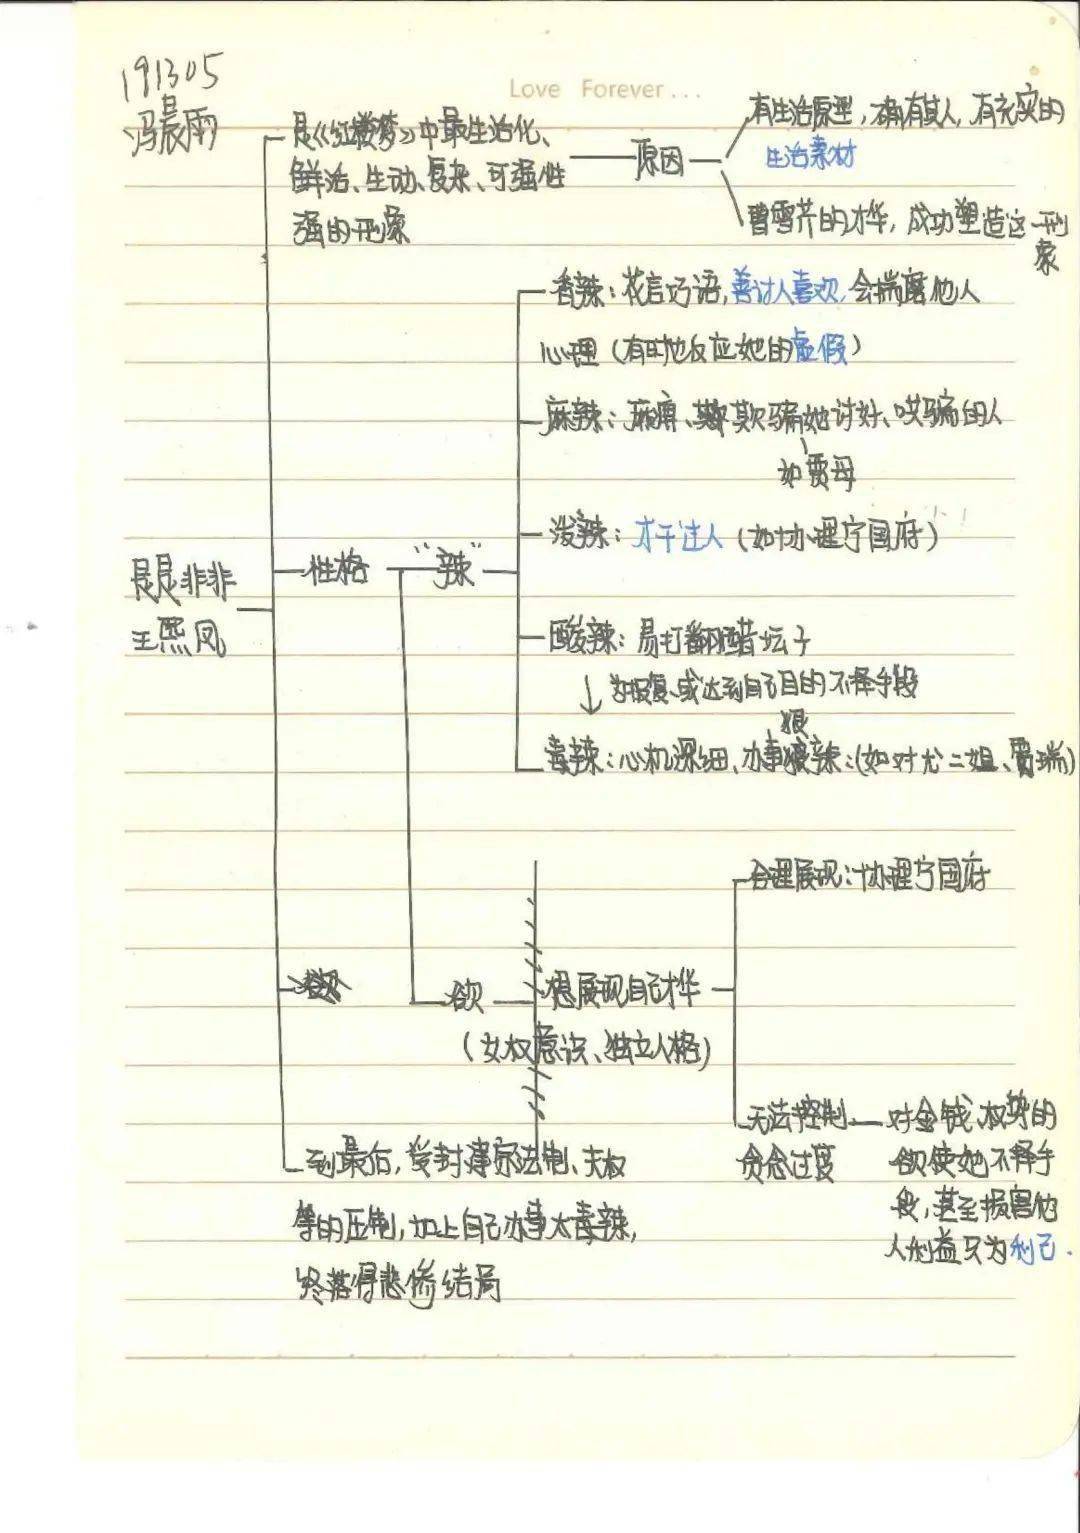 191305
冯晨雨
Love Forever...
是《红楼梦》中最生活化、
鲜活、生动、复杂、可强性
强的形象
原因
有生活原型，确有其人，有充实的
生活素材
曹雪芹的才华，成功塑造这一形
象
香辣：花言巧语，善讨人喜欢，会揣磨他人
心理（有时也反应她的虚假）
麻辣：麻痹、欺骗她讨好、哄骗的人
如贾母
泼辣：才干过人（如协理宁国府）
是是非非
王熙凤
性格
“辣”
酸辣：易打翻醋坛子
为报复、或达到自己目的不择手段
狠
毒辣：心机深细、办事狠辣：（如对尤二姐、贾瑞）
合理展现：协理宁国府
欲
想展现自己才华
（女权意识、独立人格）
无法控制
贪念过度
对金钱、权势的
欲使她不择手
段，甚至损害他
人利益只为利己.
到最后，受封建宗法制、夫权
等的压制，加上自己办事太毒辣，
终落得悲惨结局